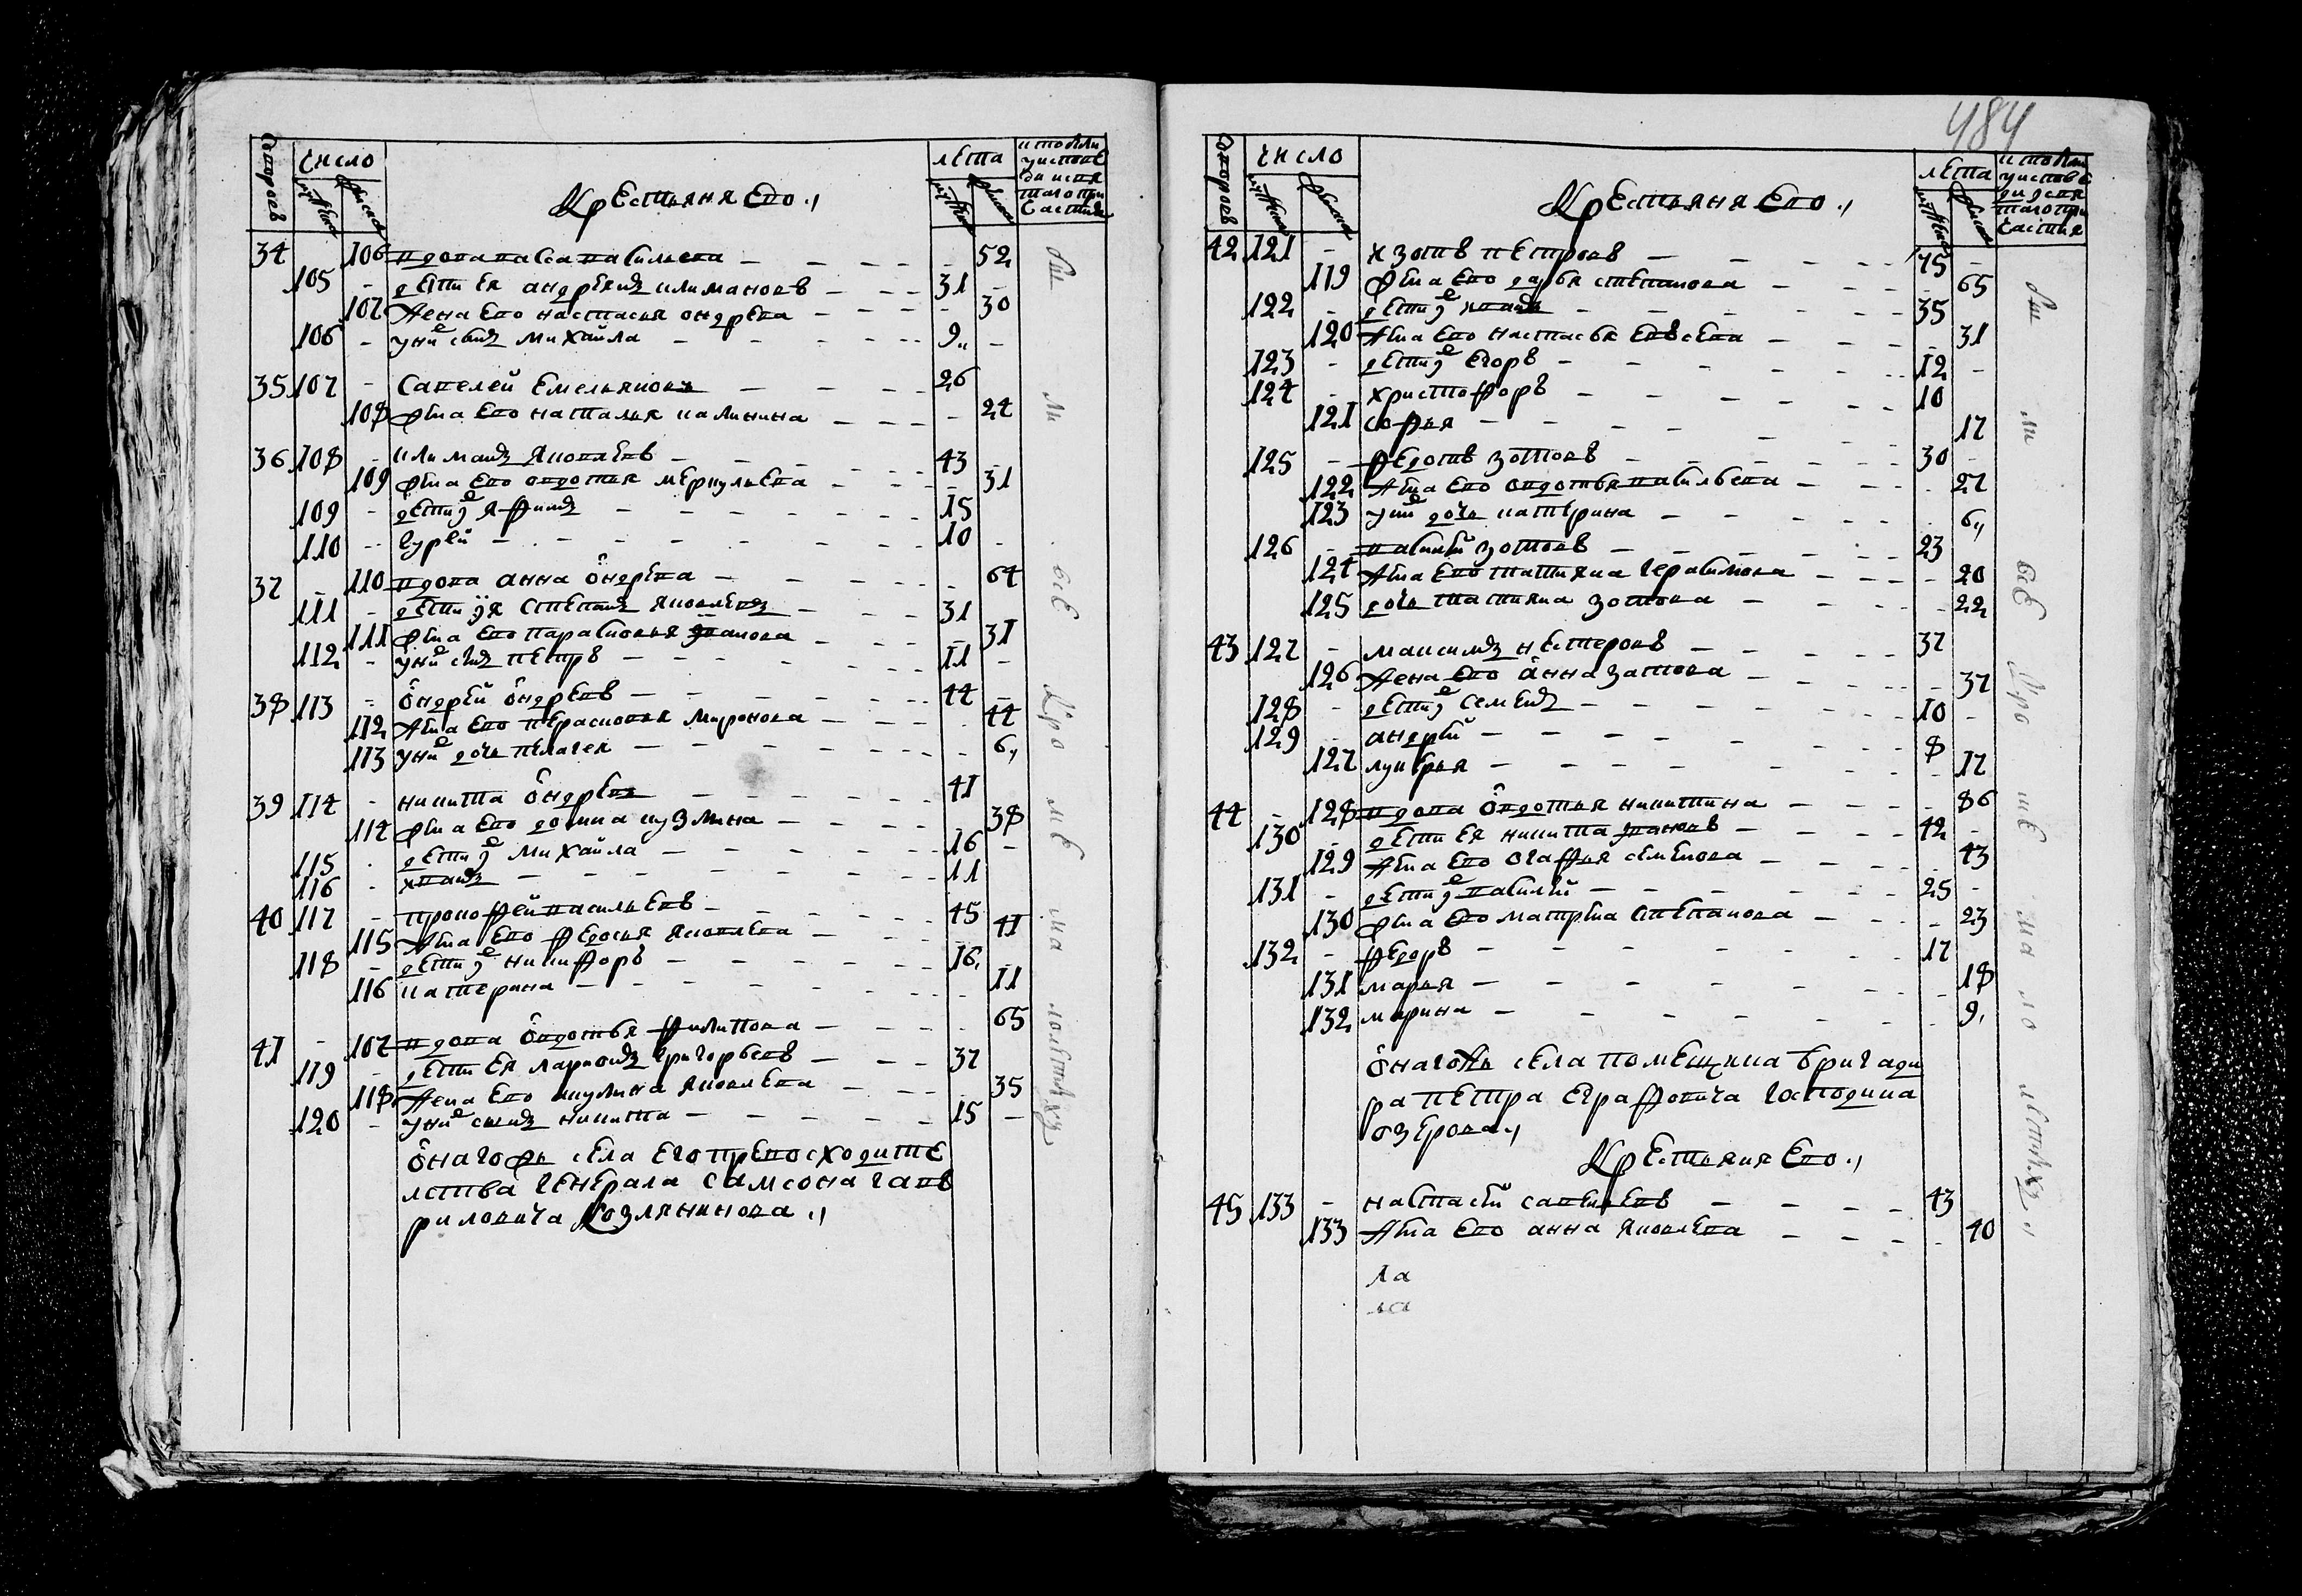 484
число
лета
крестьяня ево
34 106 вдова васа василева 52
105 дети ея андреянъ климановъ 31
107 жена ево настасья ондрева 30
106 у них сынъ михайла 9
35 107 савелей емельяновъ 26
108 жена ево наталья калинина 24
36 108 климанъ яковлевъ 43
109 жена ево овдотья меркульева 31
109 дети их яфимъ 15
110 гурей 10
37 110 вдова анна ондрева 64
111 дети у ея степанъ яковлевъ 31
111 жена ево парасковья иванова 31
112 у них сынъ петръ 11
38 113 ондрей ондревъ 44
112 жена ево перасковья миронова 44
113 у них дочь пелагея 6
39 114 никита ондревъ 41
114 жена ево домна кузмина 38
115 дети их михайла 16
116 иванъ 11
40 117 прокофей васильевъ 45
115 жена ево федосья яковлева 41
118 дети их никифоръ 16
116 катерина 11
41 107 вдова овдотья филипова 65
119 дети ея ларионъ григорьевъ 37
118 жена ево акулина яковлева 35
120 у них сынъ никита 15
онагожь села его превосходите
льства генерала самсона гав
риловича козлянинова
число
лета
крестьяня ево
42 121 изотъ петровъ 75
119 жена ево дарья степанова 65
122 дети их иванъ 35
120 жена ево настасья евсева 31
123 дети их егоръ 12
124 христофоръ 10
121 софья 17
125 федотъ зотовъ 30
122 жена ево овдотья васильева 27
123 у них дочь катерина 6
126 василей зотовъ 23
124 жена ево татияна герасимова 20
125 дочь татияна зотова 22
43 127 максимъ нестеровъ 37
126 жена ево анна затова 37
128 дети их семенъ 10
129 андрей 8
127 лукерья 17
44 128 вдова овдотья никитина 86
130 дети ея никита ивановъ 42
129 жена ево огафья семенова 43
131 дети их василей 25
130 жена ево матрена степанова 23
132 федоръ 17
131 марья 18
132 марина 9
онагожь села помещика бригади
ра петра еграфовича господина
озерова
крестьяня ево
45 133 настасей савельевъ 43
133 жена ево анна яковлева 40